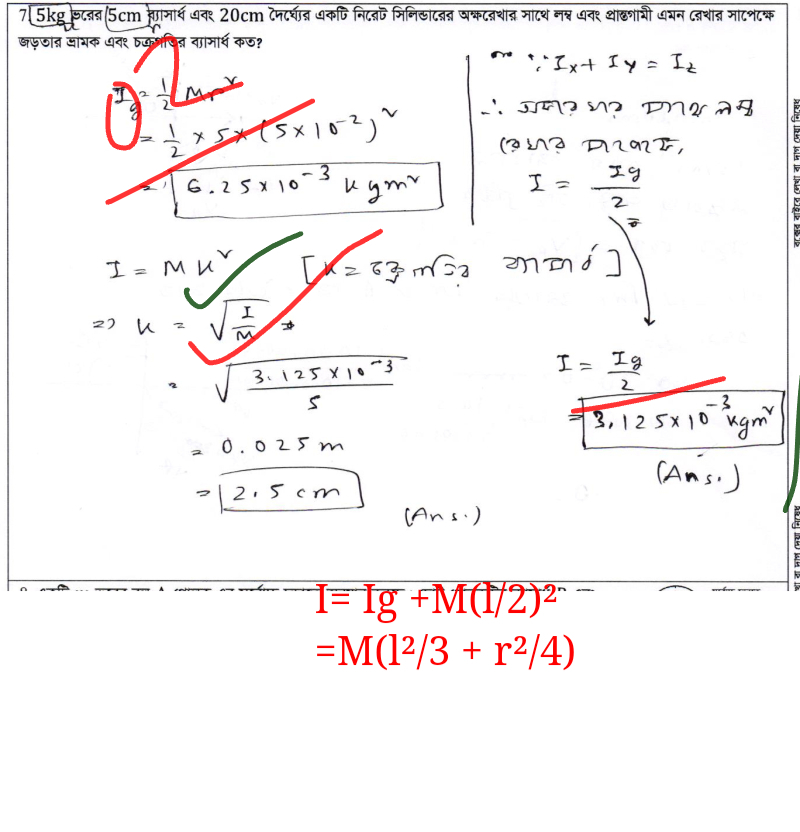 7. 5kg ভরের 5cm ব্যাসার্ধ এবং 20cm দৈর্ঘ্যের একটি নিরেট সিলিন্ডারের অক্ষরেখার সাথে লম্ব এবং প্রান্তগামী এমন রেখার সাপেক্ষে
জড়তার ভ্রামক এবং চক্রগতির ব্যাসার্ধ কত?
0 2
Ig = 1/2 Mr²
= 1/2 × 5 × (5×10⁻²)²
= 6.25×10⁻³ kgm²
∵ Ix + Iy = Iz
∴ লম্ব
রেখার সাপেক্ষে,
I = Ig/2
I = MK² [K = চক্রগতির ব্যাসার্ধ]
=> K = √(I/M)
= √(3.125×10⁻³/5)
= 0.025 m
= 2.5 cm
(Ans.)
I = Ig/2
= 3.125×10⁻³ kgm²
(Ans.)
I= Ig +M(l/2)²
=M(l²/3 + r²/4)